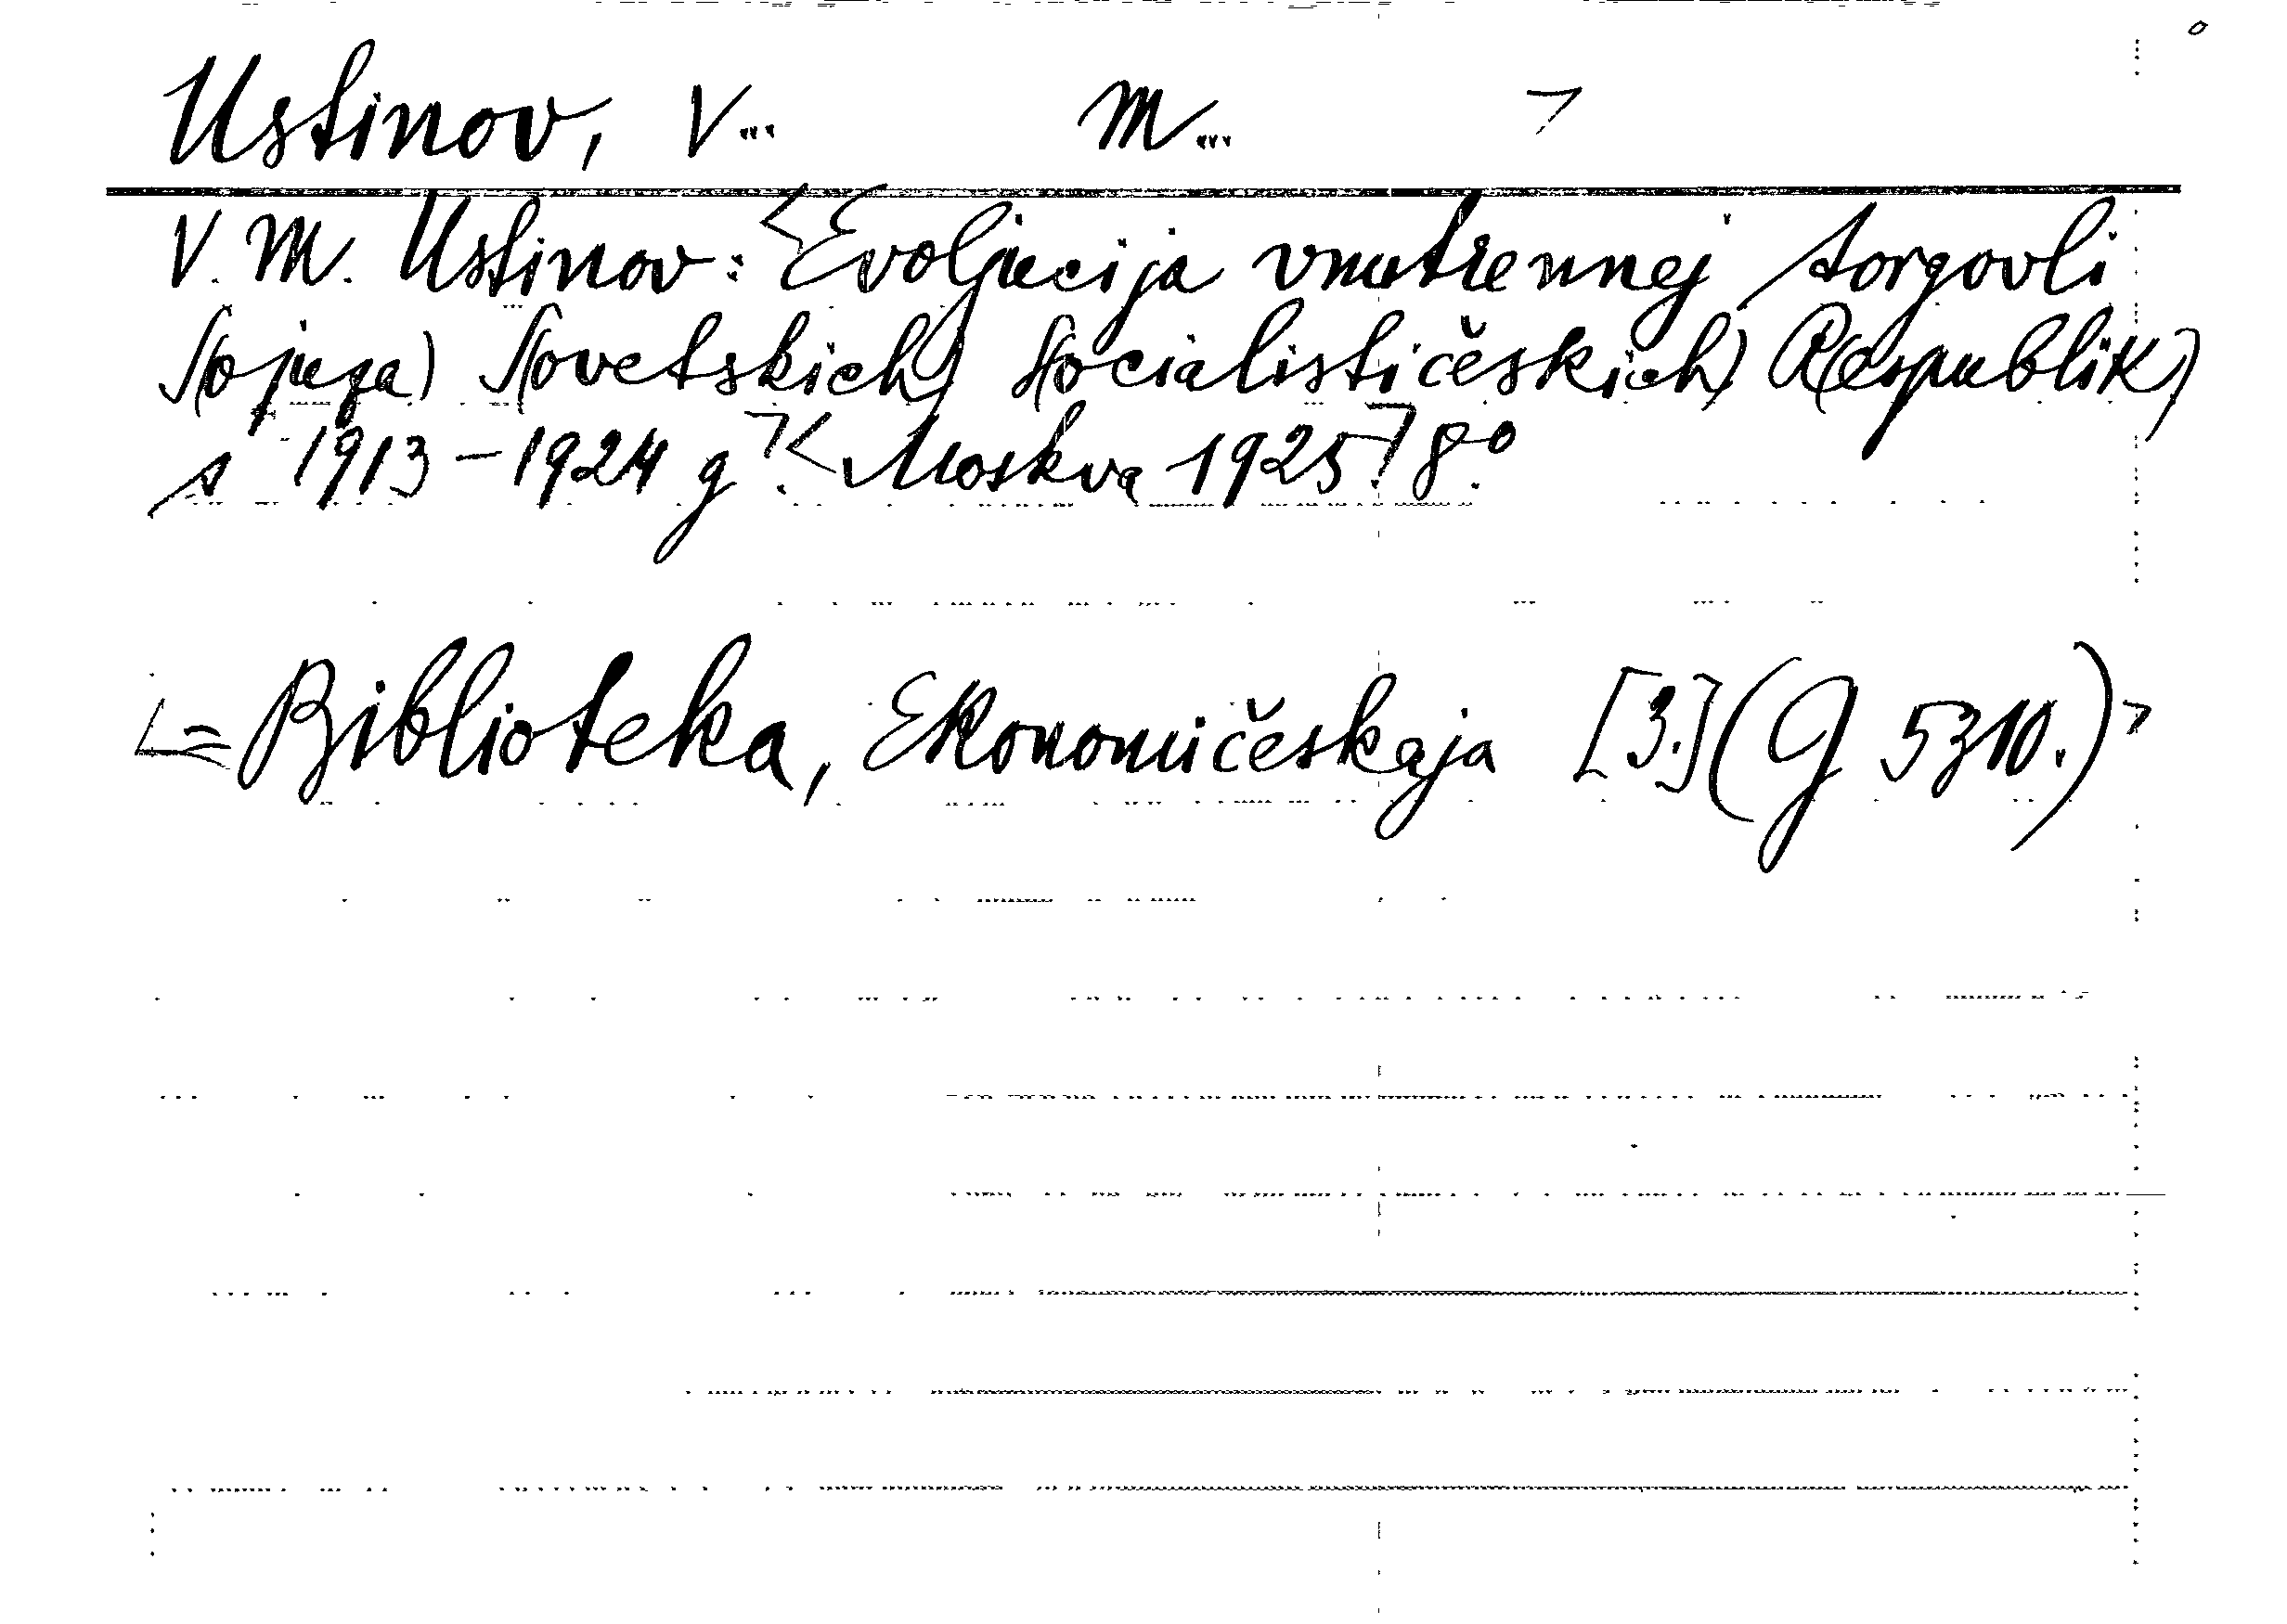 Ustinov, V... M...
V. M. Ustinov: Evoljucija vnutrennej torgovli
S(ojuza) S(ovetskich) S(ocialističeskich) R(espublik)
s 1913-1924 g. Moskva 1925. 8°.
= Biblioteka, Ekonomičeskaja [3.] (G 5310.)